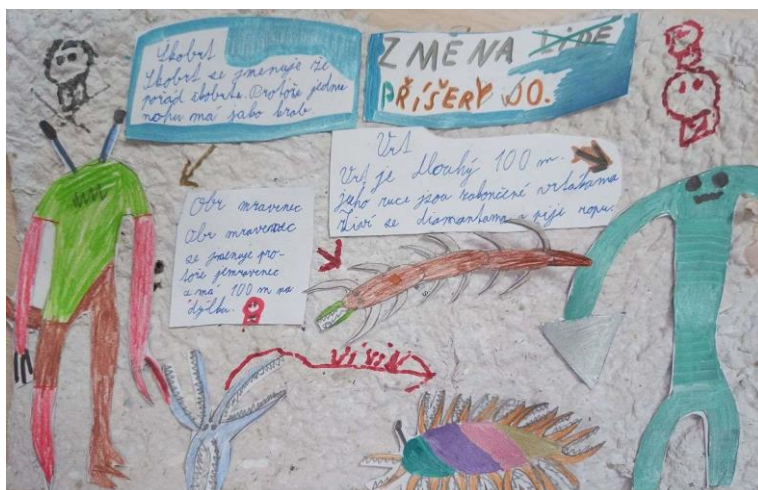 Skobrt
Skobrt se jmenuje že
pořád skobrte. Protože jednu
nohu má jako krab.
ZMĚNA LIDE
PŘÍŠERY DO.
Vrt
Vrt je dlouhý 100 m.
jeho ruce jsou zakončené vrtákama
Živí se diamantama a pije ropu.
Obr mravenec
Obr mravenec
se jmenuje pro-
tože jemravenec
a má 100 m na
dýlku.